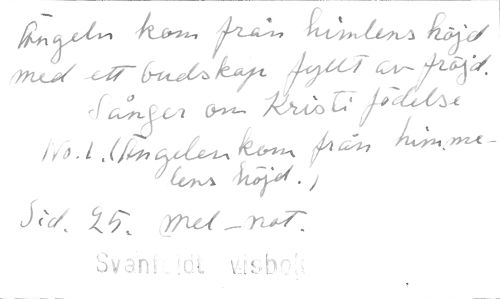 Ängeln kom från himlens höjd
med ett budskap fyllt av fröjd.
Sånger om Kristi födelse
No. 1. (Ängelen kom från himme-
lens höjd.)
Sid. 25. mel-not.
visbok